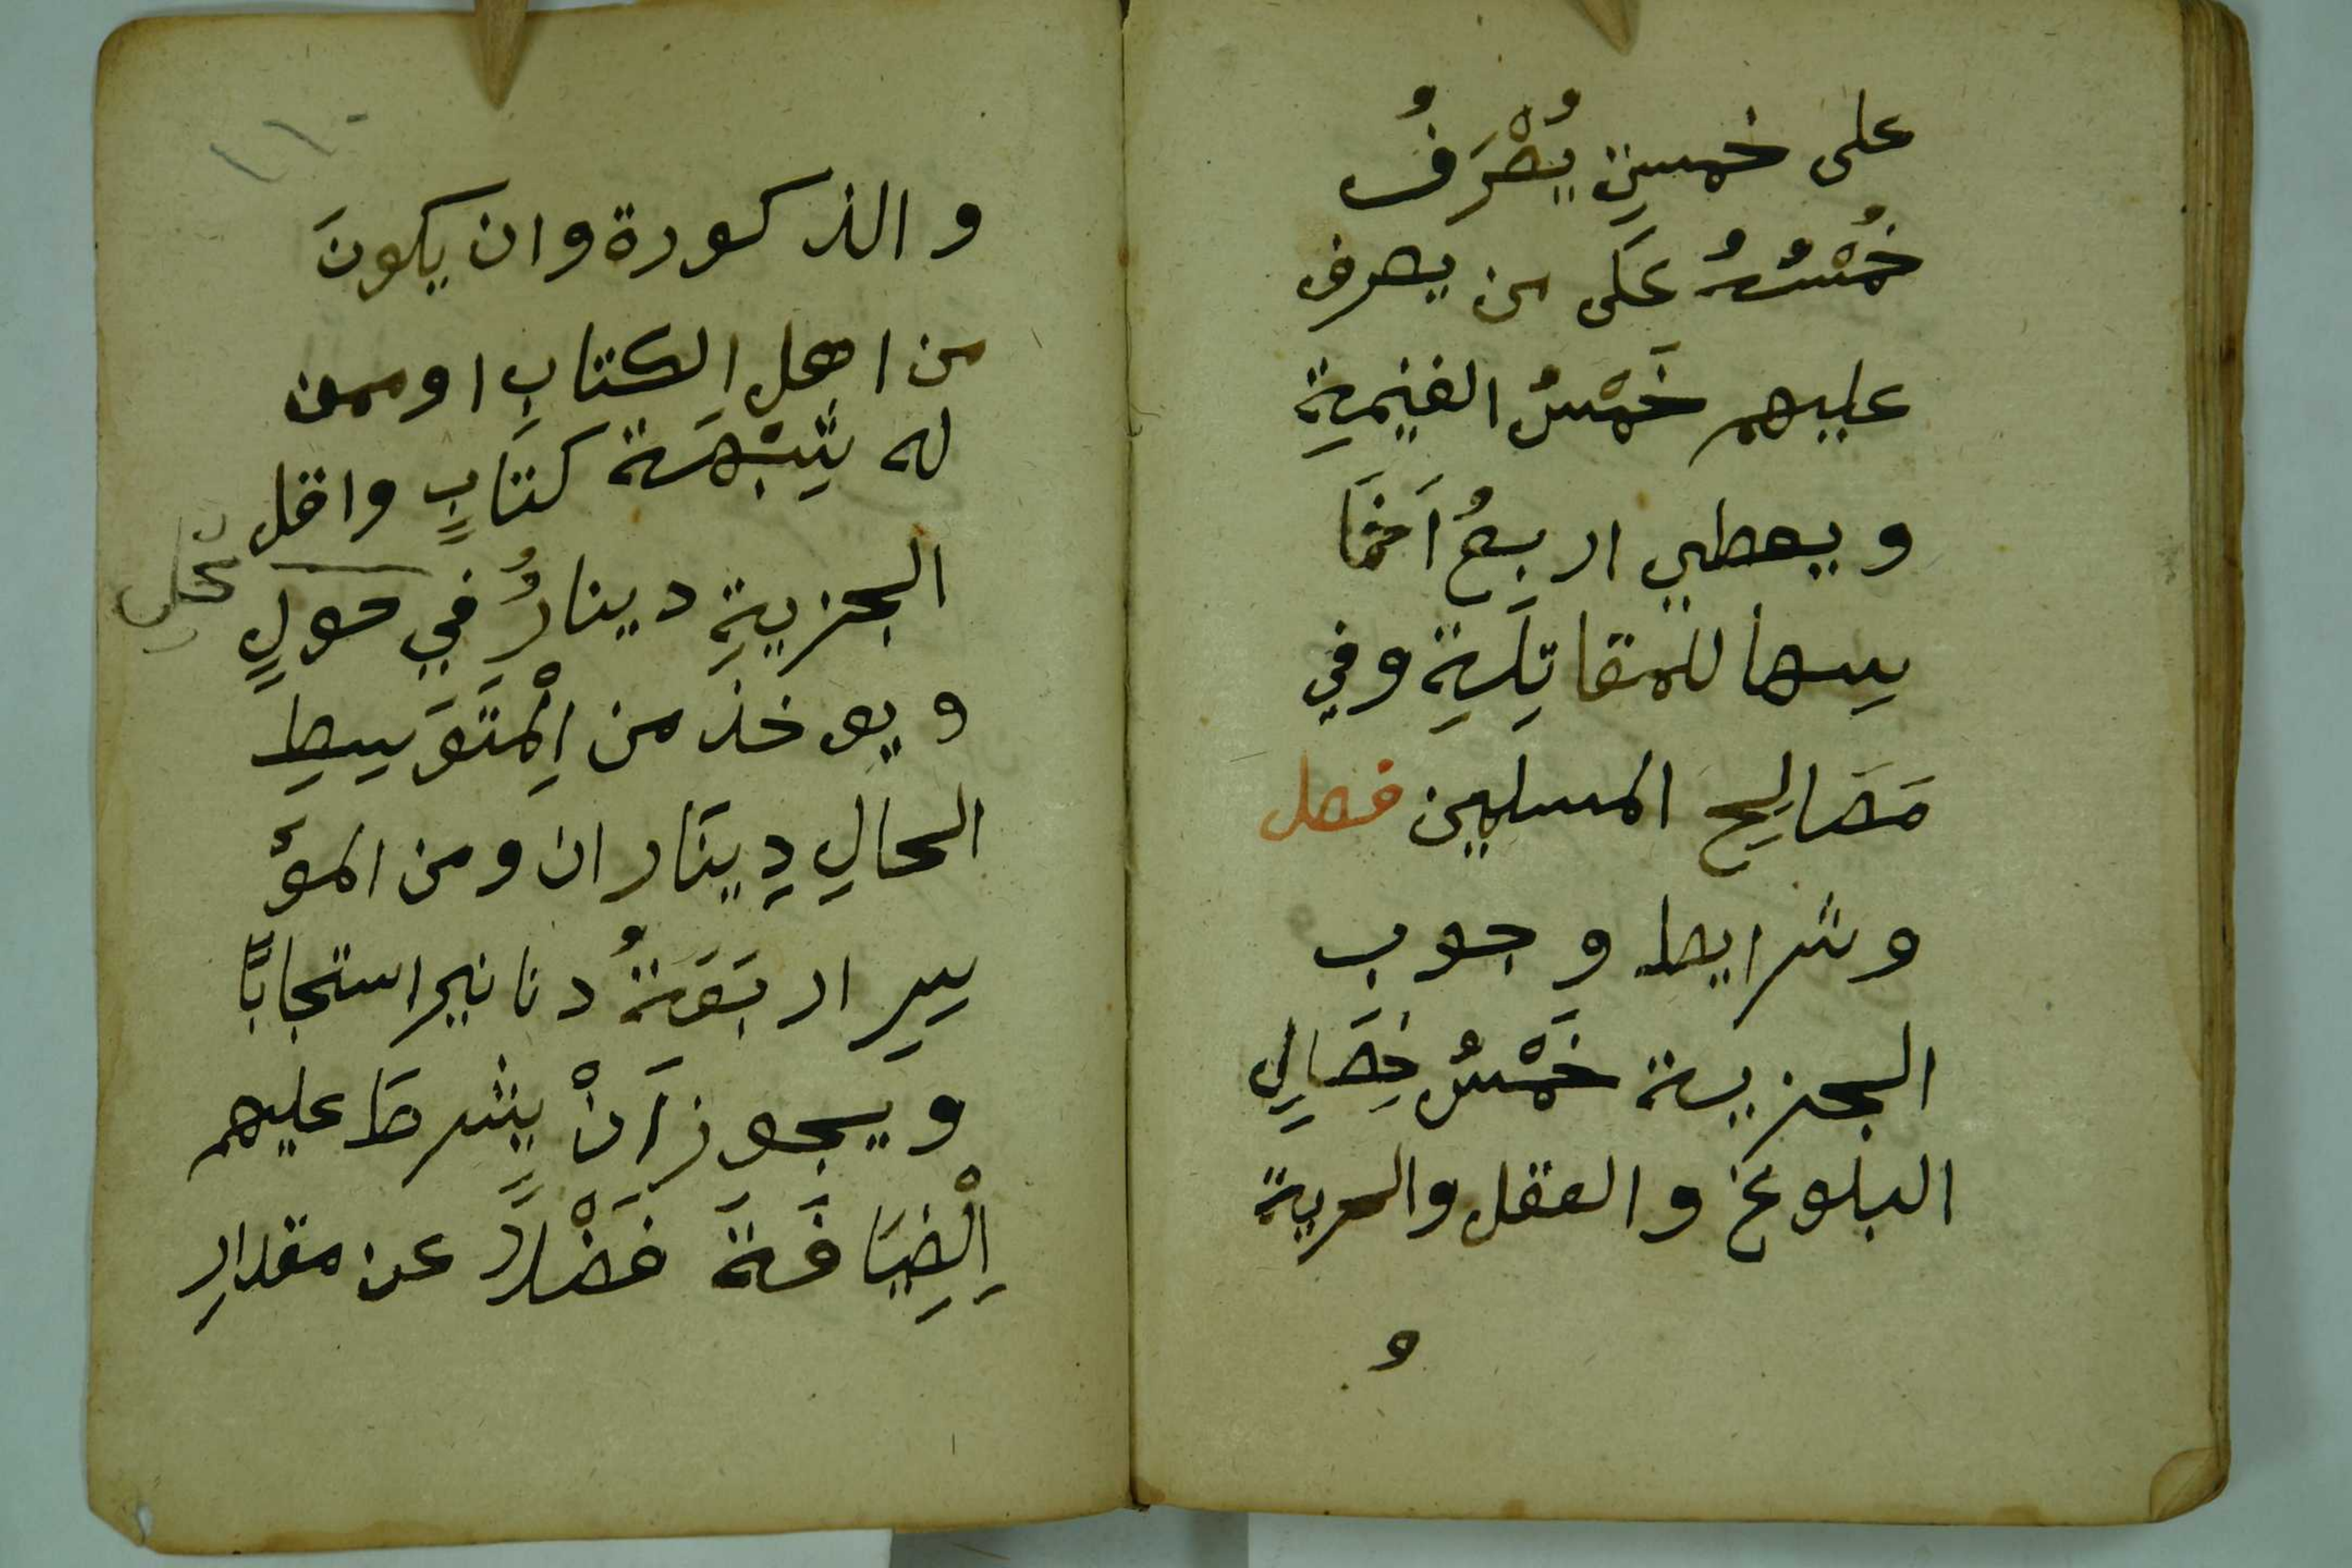 على خمسةٍ يُصْرَفُ
خُمْسُهُ عَلَى من يصرف
عليهم خَمْسُ الغنيمةِ
ويعطي اربعُ اَخمَا
سِها للمقاتِلَةِ وفي
مَصَالِحِ المسلمين فصل
وشرايط وجوب
الجزية خَمْسُ خِصَالٍ
البلوغ والعقل والحرية
و
١١٠
و الذكورة وان يكونَ
من اهلِ الكتابِ او ممن
له شِبْهَة كتَابٍ واقل
الجزيةِ دينارُ في حولٍ
ويوخذ من اِلْمتَوَسِطِ
الحالِ دِينَاران ومن الموُ
سِرِ اربَعَةُ دنانير استجابًا
ويجوز اَنْ يشرطَ عليهم
اِلْضِيَافَةَ فَضْلاً عن مقدارِ